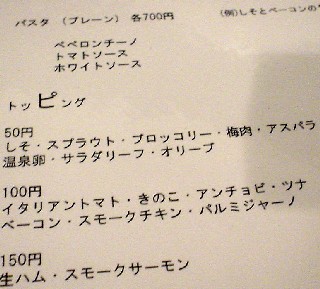 パスタ （プレーン） 各700円
(例)しそとベーコンの
ペペロンチーノ
トマトソース
ホワイトソース
トッピング
50円
しそ・スプラウト・ブロッコリー・梅肉・アスパラ
温泉卵・サラダリーフ・オリーブ
100円
イタリアントマト・きのこ・アンチョビ・ツナ
ベーコン・スモークチキン・パルミジャーノ
150円
生ハム・スモークサーモン